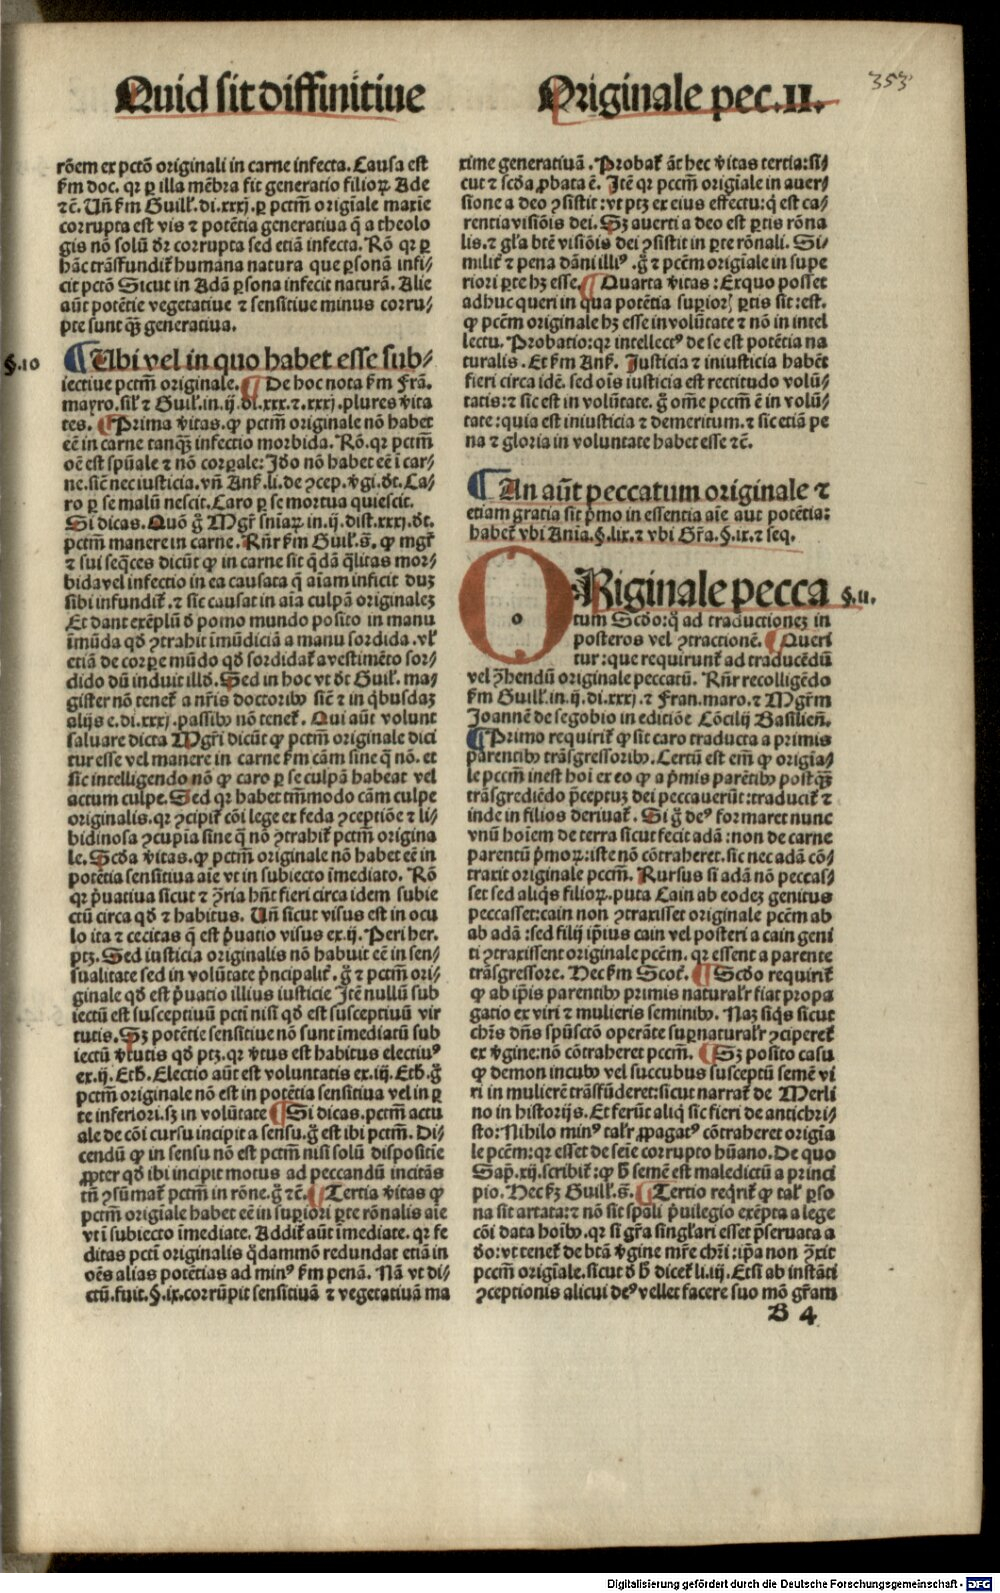 Quid sit diffinitiue
Originale pec. II.
353
rõem ex pctõ originali in carne infecta. Causa est
km doc. qr p illa mẽbra fit generatio filioꝝ Ade
⁊c̃. Uñ km Guill'. di. xxxj. p pctm̃ origĩale maxie
corrupta est vis ⁊ potẽtia generatiua q̃ a theolo
gis nõ solũ dr̃ corrupta sed etiã infecta. Rõ qr p
hãc trãsfundit̃ humana natura que psonã infi-
cit pctõ Sicut in Adã psona infecit naturã. Alie
aũt potẽtie vegetatiue ⁊ sensitiue minus corru-
pte sunt q̃ꝫ generatiua.
§. 10
¶ Ubi vel in quo habet esse sub-
iectiue pctm̃ originale. ¶ De hoc nota km Frã.
mayro. sil' ⁊ Guil'. in. ij. di. xxx. ⁊. xxxj. plures v̾ita
tes. ¶ Prima v̾itas. ꝙ pctm̃ originale nõ habet
eẽ in carne tanq̃ꝫ infectio morbida. Rõ. qr pctm̃
oẽ est spũale ⁊ nõ corpale: Jdo nõ habet eẽ ĩ car-
ne. siẽ nec iusticia. vñ Ans̃. li. de ꝯcep. v̾gi. dt̃. Ca-
ro p se malũ nescit. Caro p se mortua quiescit.
Si dicas. Quõ g̃ Mgr̃ sniaꝝ in. ij. dist. xxxj. dt̃.
pctm̃ manere in carne. Rñr km Guil'. s̃. ꝙ mgr̃
⁊ sui seq̃ces dicũt ꝙ in carne sit q̃dã q̃litas mor-
bida vel infectio in ea causata q̃ aĩam inficit duꝫ
sibi infundit̃. ⁊ sic causat in aĩa culpã originaleꝫ
Et dant exẽplũ d̾ pomo mundo posito in manu
ĩmũda qd̾ ꝯtrahit ĩmũdiciã a manu sordida. vl'
etiã de corpe mũdo qd̾ sordidat̃ a vestimẽto sor-
dido dũ induit illd̾. Sed in hoc vt dt̃ Guil'. ma-
gister nõ tenet̃ a nr̃is doctoribꝰ siẽ ⁊ in q̃busdaꝫ
alijs e. di. xxxj. passibꝰ nõ tenet̃. Qui aũt volunt
saluare dicta Mgr̃i dicũt ꝙ pctm̃ originale dici
tur esse vel manere in carne km cãm sine q̃ nõ. et
sic intelligendo nõ ꝙ caro p se culpã habeat vel
actum culpe. Sed qr habet tm̃modo cãm culpe
originalis. qr ꝯcipit̃ cõi lege ex feda ꝯceptiõe ⁊ li-
bidinosa ꝯcupĩa sine q̃ nõ ꝯtrahit̃ pctm̃ origina
le. Scd̾a v̾itas. ꝙ pctm̃ originale nõ habet eẽ in
potẽtia sensitiua aĩe vt in subiecto ĩmediato. Rõ
qr p̾uatiua sicut ⁊ ꝯ̃ria hñt fieri circa idem subie
ctũ circa qd̾ ⁊ habitus. Uñ sicut visus est in ocu
lo ita ⁊ cecitas q̃ est p̾uatio visus ex. ij. Peri her.
ptꝫ. Sed iusticia originalis nõ habuit eẽ in sen-
sualitate sed in volũtate p̾ncipalit̃. g̃ ⁊ pctm̃ ori-
ginale qd̾ est p̾uatio illius iusticie Jtẽ nullũ sub
iectũ est susceptiuũ pcti nisi qd̾ est susceptiuũ vir
tutis. Sꝫ potẽtie sensitiue nõ sunt ĩmediatũ sub
iectũ v̾tutis qd̾ ptꝫ. qr v̾tus est habitus electiuꝰ
ex. ij. Eth. Electio aũt est voluntatis ex. iij. Eth. g̃
pctm̃ originale nõ est in potẽtia sensitiua vel in p
te inferiori. sꝫ in volũtate ¶ Si dicas. pctm̃ actu
ale de cõi cursu incipit a sensu. g̃ est ibi pctm̃. Di-
cendũ ꝙ in sensu nõ est pctm̃ nisi solũ dispositie
ꝓpter qd̾ ibi incipit motus ad peccandũ incitãs
tñ ꝯsũmat̃ pctm̃ in rõne. g̃ ⁊c̃. ¶ Tertia v̾itas ꝙ
pctm̃ origĩale habet eẽ in supiori pte rõnalis aĩe
vt ĩ subiecto ĩmediate. Addit̃ aũt ĩmediate. qr fe
ditas pcti originalis q̃dammõ redundat etiã in
oẽs alias potẽtias ad minꝰ km penã. Nã vt di-
ctũ. fuit. §. ix. corrũpit sensitiuã ⁊ vegetatiuã ma
xime generatiuã. Probat̃ ãt hec v̾itas tertia: si-
cut ⁊ scd̾a ꝓbata ẽ. Jtẽ qr pccm̃ origĩale in auer-
sione a deo ꝯsistit: vt ptꝫ ex eius effectu: q̃ est ca-
rentia visiõis dei. Sꝫ auerti a deo est ptis rõna
lis. ⁊ gl'a btẽ visiõis dei ꝯsistit in pte rõnali. Si-
milit̃ ⁊ pena dãni illiꝰ. g̃ ⁊ pcẽm origĩale in supe
riori pte hꝫ esse. ¶ Quarta v̾itas: Ex quo posset
adhuc queri in qua potẽtia superiorꝭ ptis sit: est.
ꝙ pcẽm originale hꝫ esse in volũtate ⁊ nõ in intel
lectu. Probatio: qr intellectꝰ de se est potẽtia na
turalis. Et km Ans̃. Justicia ⁊ iniusticia habẽt
fieri circa idẽ. sed oĩs iusticia est rectitudo volũ-
tatis: ⁊ sic est in volũtate. g̃ om̃e pccm̃ ẽ in volũ-
tate: quia est iniusticia ⁊ demeritum. ⁊ sic etiã pe
na ⁊ gloria in voluntate habet esse ⁊c̃.
¶ An aũt peccatum originale ⁊
etiam gratia sit p̾mo in essentia aĩe aut potẽtia:
habet̃ vbi Anĩa. §. lix. ⁊ vbi Gr̃a. §. ix. ⁊ seq.
ORiginale pecca
§. 11.
o
tum Scd̾o: q̃ ad traductionez in
posteros vel ꝯtractionẽ. ¶ Queri
tur: que requirunt̃ ad traducẽdũ
vel ꝯ̾hendũ originale peccatũ. Rñr recolligẽdo
km Guill'. in. ij. di. xxxj. ⁊ Fran. maro. ⁊ Mgr̃m
Joannẽ de segobio in editiõe Cõcilij Basilieñ.
¶ Primo requirit̃ ꝙ sit caro traducta a primis
parentibꝰ trãsgressoribꝰ. Certũ est em̃ ꝙ origĩa-
le pccm̃ inest hoĩ ex eo ꝙ a p̾mis parẽtibꝰ postq̃ꝫ
trãsgrediẽdo p̃ceptuꝫ dei peccauerũt: traducit̃ ⁊
inde in filios deriuat̃. Si g̃ deꝰ formaret nunc
vnũ hoĩem de terra sicut fecit adã: non de carne
parentũ p̾moꝝ: iste nõ cõtraheret. sic nec adã cõ-
traxit originale pccm̃. Rursus si adã nõ peccas-
set sed aliq̃s filioꝝ. puta Cain ab eodeꝫ genitus
peccasset: cain non ꝯtraxisset originale pcẽm ab
ab adã: sed filij ip̃ius cain vel posteri a cain geni
ti ꝯtraxissent originale pcẽm. qr essent a parente
trãsgressore. Hec km Scot̃. ¶ Scd̾o requirit̃
ꝙ ab ip̃is parentibꝰ primis naturalr̃ fiat propa
gatio ex viri ⁊ mulieris seminibꝰ. Naꝫ siq̃s sicut
chr̃s dñs spũsctõ operãte supnaturalr̃ ꝯciperet̃
ex v̾gine: nõ cõtraheret pccm̃. ¶ Sꝫ posito casu
ꝙ demon incubꝰ vel succubus susceptũ semẽ vi
ri in mulierẽ trãsfũderet: sicut narrat̃ de Merli
no in historijs. Et ferũt aliq̃ sic fieri de antichri-
sto: Nihilo minꝰ talr̃ ꝓpagatꝰ cõtraheret origĩa
le pcẽm: qr esset de seĩe corrupto hũano. De quo
Sap̃. xij. scribit̃: ꝙ h̾ semẽ est maledictũ a princi
pio. Hec kꝫ Guill'. s̃. ¶ Tertio req̃rit̃ ꝙ tal' pso
na sit artata: ⁊ nõ sit spãli p̾uilegio exẽpta a lege
cõi data hoĩbꝰ. qr si gr̃a sĩgl'ari esset p̃seruata a
d̾o: vt tenet̃ de btã v̾gine mr̃e chr̃i: ip̃a non ꝯ̾xit
pccm̃ origĩale. sicut d̾ h̾ dicet̃ li. iij. Etsi ab instãti
ꝯceptionis alicui deꝰ vellet facere suo mõ gr̃am
B 4
Digitalisierung gefördert durch die Deutsche Forschungsgemeinschaft - DFG